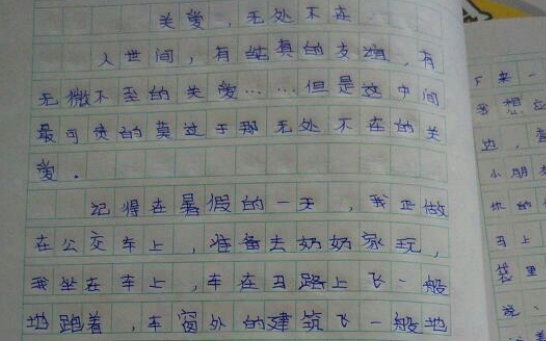 关爱，无处不在
人世间，有纯真的友谊，有
无微不至的关爱……但是这中间
最可贵的莫过于那无处不在的关
爱。
记得在暑假的一天，我正做
在公交车上，准备去奶奶家玩，
我坐在车上，车在马路上飞一般
地跑着，车窗外的建筑飞一般地
下来一
我想应
边，
小朋友
你的
马上
袋里
说